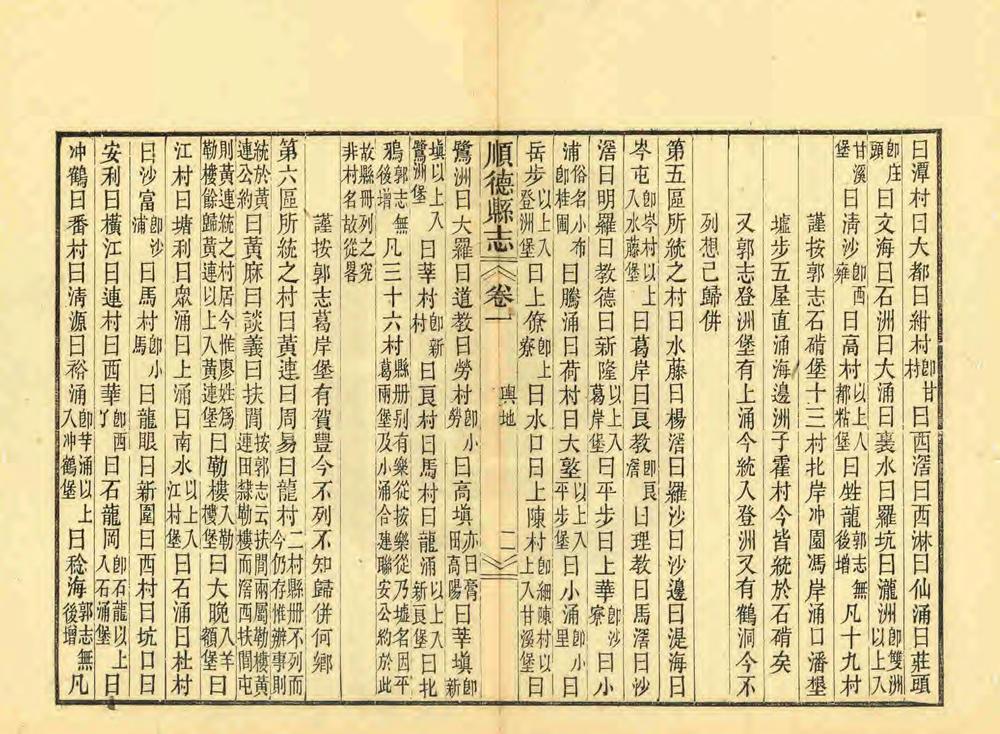 曰潭村曰大都曰紺村即甘村曰西滘曰西淋曰仙涌曰莊頭
即庄頭曰文海曰石洲曰大涌曰裏水曰羅坑曰瀧洲即雙洲以上入
甘溪堡曰淸沙即西雍曰高村以上入都粘堡曰甡龍郭志無後增凡十九村
謹按郭志石硝堡十三村北岸冲園馮岸涌口潘墾
墟步五屋直涌海邊洲子霍村今皆統於石硝矣
又郭志登洲堡有上涌今統入登洲又有鶴洞今不
列想已歸併
第五區所統之村曰水藤曰楊滘曰羅沙曰沙邊曰湜海曰
岑屯即岑村以上入水藤堡曰葛岸曰良教即良滘曰理教曰馬滘曰沙
滘曰明羅曰教德曰新隆以上入葛岸堡曰平步曰上華即沙寮曰小
浦俗名小布即桂圃曰騰涌曰荷村曰大墪以上入平步堡曰小涌即小里曰
岳步以上入登洲堡曰上僚即上寮曰水口曰上陳村即細陳村以上入甘溪堡曰
順德縣志 卷一 輿地 二
鷺洲曰大羅曰道教曰勞村即小勞曰高塡亦曰膏田高陽曰莘塡即新
塡以上入鷺洲堡曰莘村即新村曰良村曰馬村曰龍涌以上入新良堡曰北
鴉郭志無後增凡三十六村縣册別有樂從按樂從乃墟名因平葛兩堡及小涌合建聯安公約於此
故縣冊列之究非村名故從畧
謹按郭志葛岸堡有賀豐今不列不知歸併何鄉
第六區所統之村曰黃連曰周易曰龍村二村縣册不列而今仍存惟辦事則
統於黃連公約曰黃麻曰談義曰扶閭按郭志云扶閭兩屬勒樓黃連田隸勒樓而滘西扶閭屯
則黃連統之村居今惟廖姓爲勒樓餘歸黃連以上入黃連堡曰勒樓入勒樓堡曰大晚入羊額堡曰
江村曰塘利曰眾涌曰上涌曰南水以上入江村堡曰石涌曰杜村
曰沙富即沙浦曰馬村即小馬曰龍眼曰新圍曰西村曰坑口曰
安利曰橫江曰連村曰西華即西丫曰石龍岡即石龍以上入石涌堡曰
冲鶴曰番村曰淸源曰裕涌即芋涌以上入冲鶴堡曰稔海郭志無後增凡